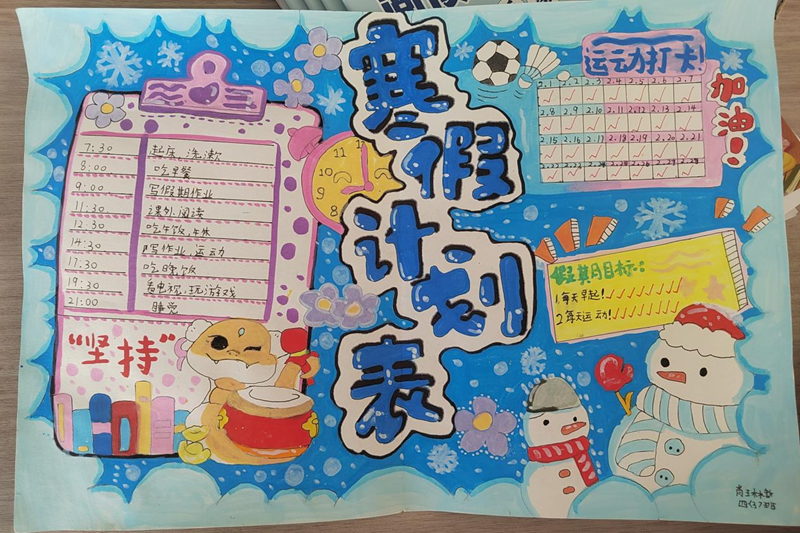 寒假计划表
7:30 起床,洗漱
8:00 吃早餐
9:00 写假期作业
11:30 课外阅读
12:30 吃午饭,午休
14:30 写作业,运动
17:30 吃晚饭
19:30 看电视,玩游戏
21:00 睡觉
“坚持”
11 12
10
9
8
运动打卡!
2.1 2.2 2.3 2.4 2.5 2.6 2.7
2.8 2.9 2.10 2.11 2.12 2.13 2.14
2.15 2.16 2.17 2.18 2.19 2.20 2.21
加油!
假期目标:
1.每天早起!
2.每天运动!